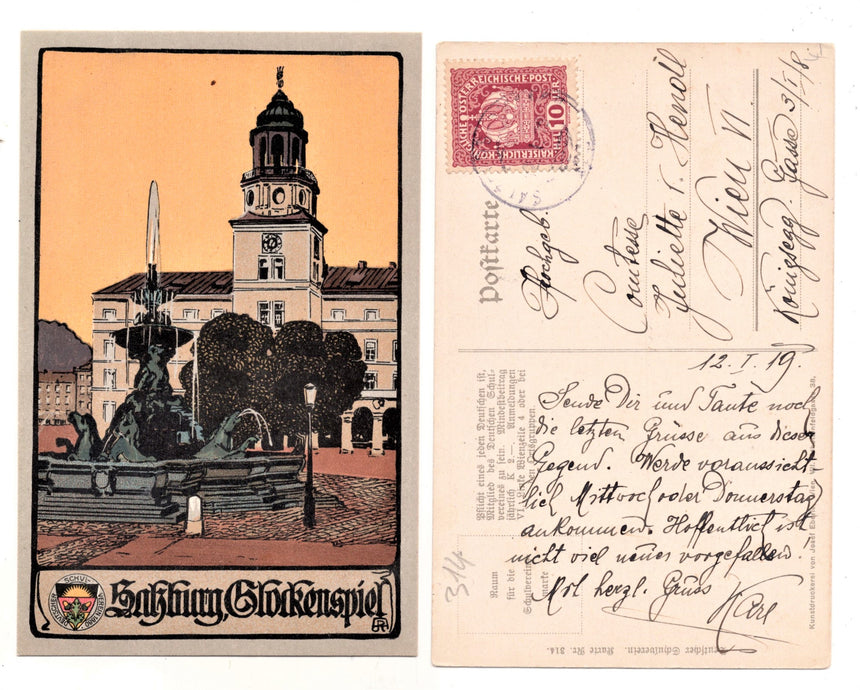 Salzburg, Glockenspiel
DEUTSCHER
SCHUL-
VEREIN 1880
KAISERLICH·KÖN
ISCHE ÖSTERREICHISCHE·POST
HELLER
10
Postkarte
Hochgeb.
Comtesse
Juliette v. Hendl
Wien VI.
Königsegg. Gasse 3/I/8
12. I. 19.
Sende Dir und Tante noch
die letzten Grüsse aus dieser
Gegend. Werde voraussicht-
lich Mittwoch oder Donnerstag
ankommen. Hoffentlich ist
nicht viel neues vorgefallen.
Mit herzl. Gruss
Karl
Pflicht eines jeden Deutschen ist,
Mitglied des Deutschen Schul-
vereines zu sein. Mindestbeitrag
jährlich K 2.—. Anmeldungen
VI. Linke Wienzeile 4 oder bei
den Ortsgruppen.
Raum
für die
Schulverein-
marke
314
Deutscher Schulverein. Karte Nr. 314.
Kunstdruckerei von Josef